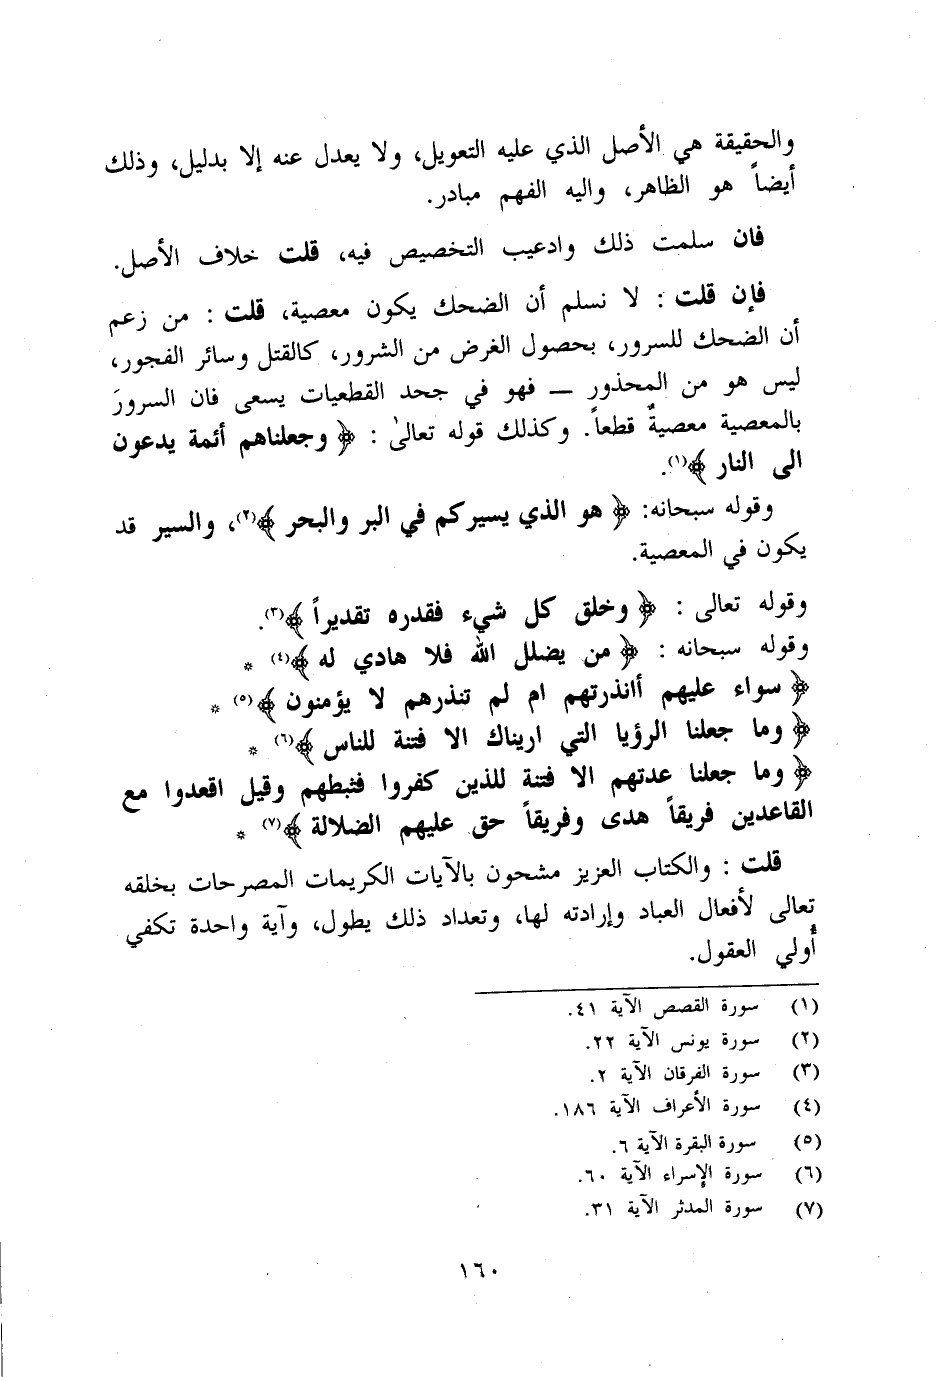 والحقيقة هي الأصل الذي عليه التعويل، ولا يعدل عنه إلا بدليل، وذلك
أيضاً هو الظاهر، واليه الفهم مبادر.
فان سلمت ذلك وادعيب التخصيص فيه، قلت خلاف الأصل.
فإن قلت : لا نسلم أن الضحك يكون معصية، قلت : من زعم
أن الضحك للسرور، بحصول الغرض من الشرور، كالقتل وسائر الفجور،
ليس هو من المحذور — فهو في جحد القطعيات يسعى فان السرورَ
بالمعصية معصيةٌ قطعاً. وكذلك قوله تعالىٰ : ﴿ وجعلناهم أئمة يدعون
الى النار ﴾(١).
وقوله سبحانه: ﴿ هو الذي يسيركم في البر والبحر ﴾(٢)، والسير قد
يكون في المعصية.
وقوله تعالى : ﴿ وخلق كل شيء فقدره تقديراً ﴾(٣).
وقوله سبحانه : ﴿ من يضلل الله فلا هادي له ﴾(٤) *
﴿ سواء عليهم أانذرتهم ام لم تنذرهم لا يؤمنون ﴾(٥) *
﴿ وما جعلنا الرؤيا التي اريناك الا فتنة للناس ﴾(٦) *
﴿ وما جعلنا عدتهم الا فتنة للذين كفروا فثبطهم وقيل اقعدوا مع
القاعدين فريقاً هدى وفريقاً حق عليهم الضلالة ﴾(٧) *
قلت : والكتاب العزيز مشحون بالآيات الكريمات المصرحات بخلقه
تعالى لأفعال العباد وإرادته لها، وتعداد ذلك يطول، وآية واحدة تكفي
أُولي العقول.
(١) سورة القصص الآية ٤١.
(٢) سورة يونس الآية ٢٢.
(٣) سورة الفرقان الآية ٢.
(٤) سورة الأعراف الآية ١٨٦.
(٥) سورة البقرة الآية ٦.
(٦) سورة الإسراء الآية ٦٠.
(٧) سورة المدثر الآية ٣١.
١٦٠